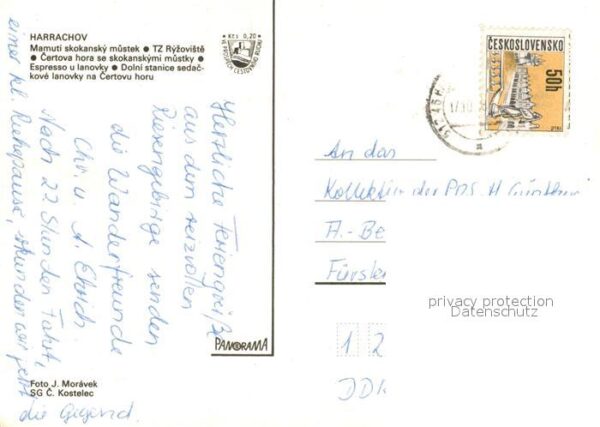 HARRACHOV
Mamutí skokanský můstek ● TZ Rýžoviště
● Čertova hora se skokanskými můstky ●
Espresso u lanovky ● Dolní stanice sedač-
kové lanovky na Čertovu horu
Kčs 0,20
ČESKOSLOVENSKO
50h
Herzliche Feriengrüße
aus dem reizvollen
Riesengebirge senden
die Wanderfreunde
Chr. u. A. Ehrich
Nach 22 Stunden Fahrt,
einer kl. Ruhepause, erkunden wir jetzt
die Gegend.
An das
Kollektiv der POS
A.-Be
Fürsten
1 2
DDR
privacy protection
Datenschutz
PANORAMA
Foto J. Morávek
SG Č. Kostelec